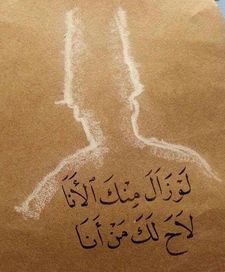 لَوْ زَالَ مِنْكَ ٱلْأَنَا
لَاحَ لَكَ مَنْ أَنَا